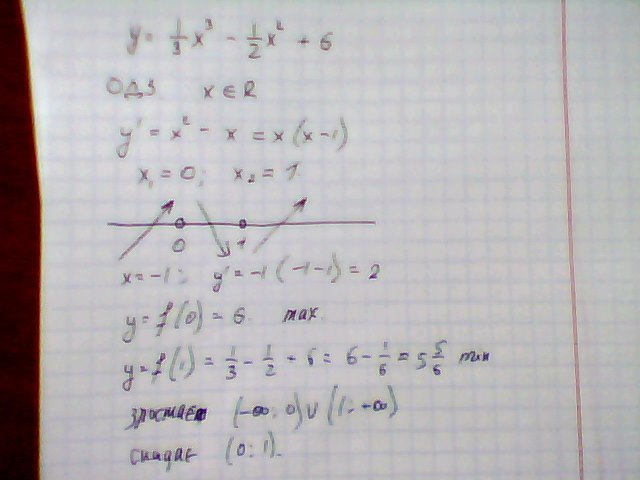 y = 1/3 x³ - 1/2 x² + 6
ОДЗ x ∈ R
y' = x² - x = x(x-1)
x₁ = 0; x₂ = 1
0 1
x = -1; y' = -1(-1-1) = 2
y = f(0) = 6 max
y = f(1) = 1/3 - 1/2 + 6 = 6 - 1/6 = 5 5/6 min
зростає (-∞; 0) ∪ (1; +∞)
спадає (0; 1).